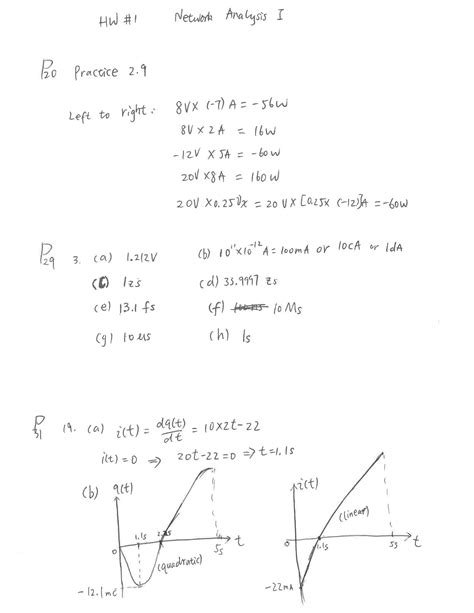 HW #1 Network Analysis I
P20 Practice 2.9
Left to right: 8V × (-7) A = -56W
8V × 2A = 16W
-12V × 5A = -60W
20V × 8A = 160W
20V × 0.25Vx = 20V × [0.25 × (-12)]A = -60W
P29 3. (a) 1.212V (b) 10^11 × 10^-12 A = 100mA or 10cA or 1dA
(c) 1zs (d) 33.9997 zs
(e) 13.1 fs (f) 10 Ms
(g) 10 us (h) 1s
P31 19. (a) i(t) = dq(t)/dt = 10×2t-22
i(t)=0 ⇒ 20t-22=0 ⇒ t=1.1s
(b) q(t) i(t)
1.1s (linear)
0 5s t 0 1.1s 5s t
(quadratic)
-12.1mC -22mA